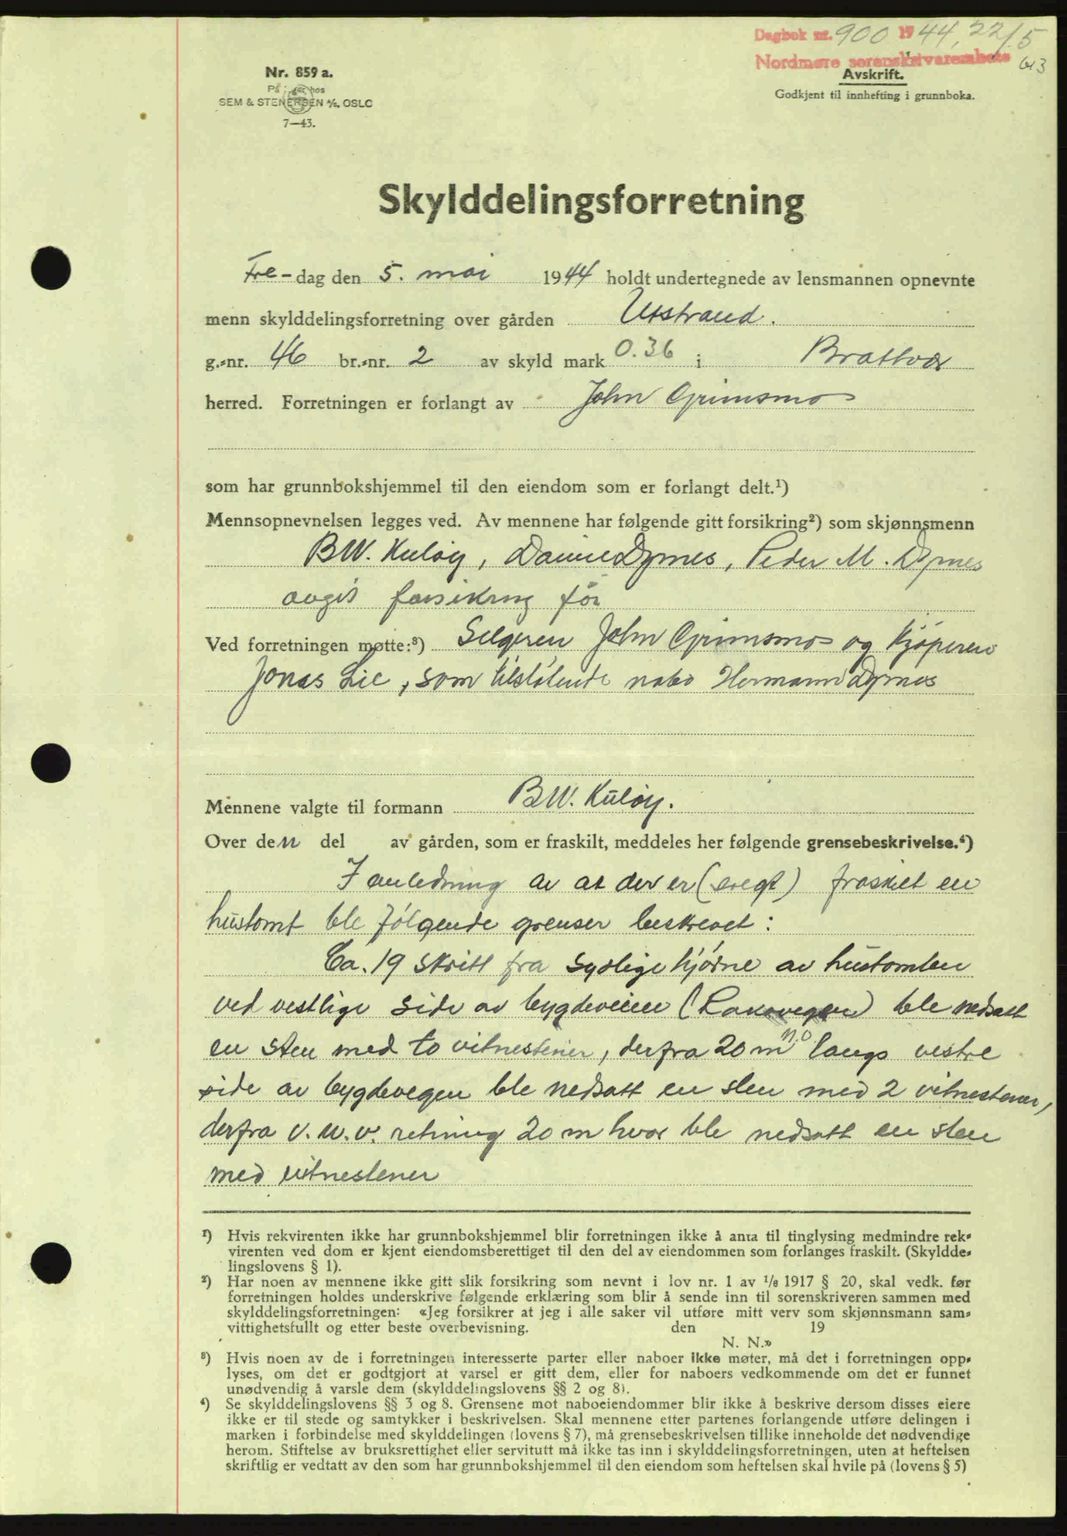 Dagbok nr. 900 1944, 22/5
Nordmøre sorenskrivarembete
Nr. 859 a.
SEM & STENERSEN A/S, OSLO
7—43.
Avskrift.
Godkjent til innhefting i grunnboka.
Skylddelingsforretning
Fre-dag den 5. mai 1944 holdt undertegnede av lensmannen opnevnte
menn skylddelingsforretning over gården Utstrand.
g.-nr. 46 br.-nr. 2 av skyld mark 0.36 i Brattvær
herred. Forretningen er forlangt av John Grimsmo
som har grunnbokshjemmel til den eiendom som er forlangt delt.¹)
Mennsopnevnelsen legges ved. Av mennene har følgende gitt forsikring²) som skjønnsmenn
B.W. Kuløy, Daniel Dyrnes, Peder M. Dyrnes
avgit forsikring før
Ved forretningen møtte:³) Selgeren John Grimsmo og kjøperen
Jonas Lie, som tilstøtende nabo Hermann Dyrnes
Mennene valgte til formann B.W. Kuløy.
Over den del av gården, som er fraskilt, meddeles her følgende grensebeskrivelse.⁴)
I anledning av at der er fraskilt en
hustomt ble følgende grenser beskrevet:
Ca. 19 skritt fra sydlige hjørne av hustomten
ved vestlige side av bygdeveien ble nedsatt
en sten med to vitnestener, derfra 20 m n.o langs vestre
side av bygdevegen ble nedsatt en sten med 2 vitnestener,
derfra v. n. v. retning 20 m hvor ble nedsatt en sten
med vitnestener
¹) Hvis rekvirenten ikke har grunnbokshjemmel blir forretningen ikke å anta til tinglysing medmindre rek-
virenten ved dom er kjent eiendomsberettiget til den del av eiendommen som forlanges fraskilt. (Skyldde-
lingslovens § 1).
²) Har noen av mennene ikke gitt slik forsikring som nevnt i lov nr. 1 av 1/6 1917 § 20, skal vedk. før
forretningen holdes underskrive følgende erklæring som blir å sende inn til sorenskriveren sammen med
skylddelingsforretningen: «Jeg forsikrer at jeg i alle saker vil utføre mitt verv som skjønnsmann sam-
vittighetsfullt og etter beste overbevisning. den 19
N. N.»
³) Hvis noen av de i forretningen interesserte parter eller naboer ikke møter, må det i forretningen opp-
lyses, om det er godtgjort at varsel er gitt dem, eller for naboers vedkommende om det er funnet
unødvendig å varsle dem (skylddelingslovens §§ 2 og 8).
⁴) Se skylddelingslovens §§ 3 og 8. Grensene mot naboeiendommer blir ikke å beskrive dersom disses eiere
ikke er til stede og samtykker i beskrivelsen. Skal mennene etter partenes forlangende utføre delingen i
marken i forbindelse med skylddelingen (lovens § 7), må grensebeskrivelsen tillike inneholde det nødvendige
herom. Stiftelse av bruksrettighet eller servitutt må ikke tas inn i skylddelingsforretningen, uten at heftelsen
skriftlig er vedtatt av den som har grunnbokshjemmel til den eiendom som heftelsen skal hvile på (lovens § 5)